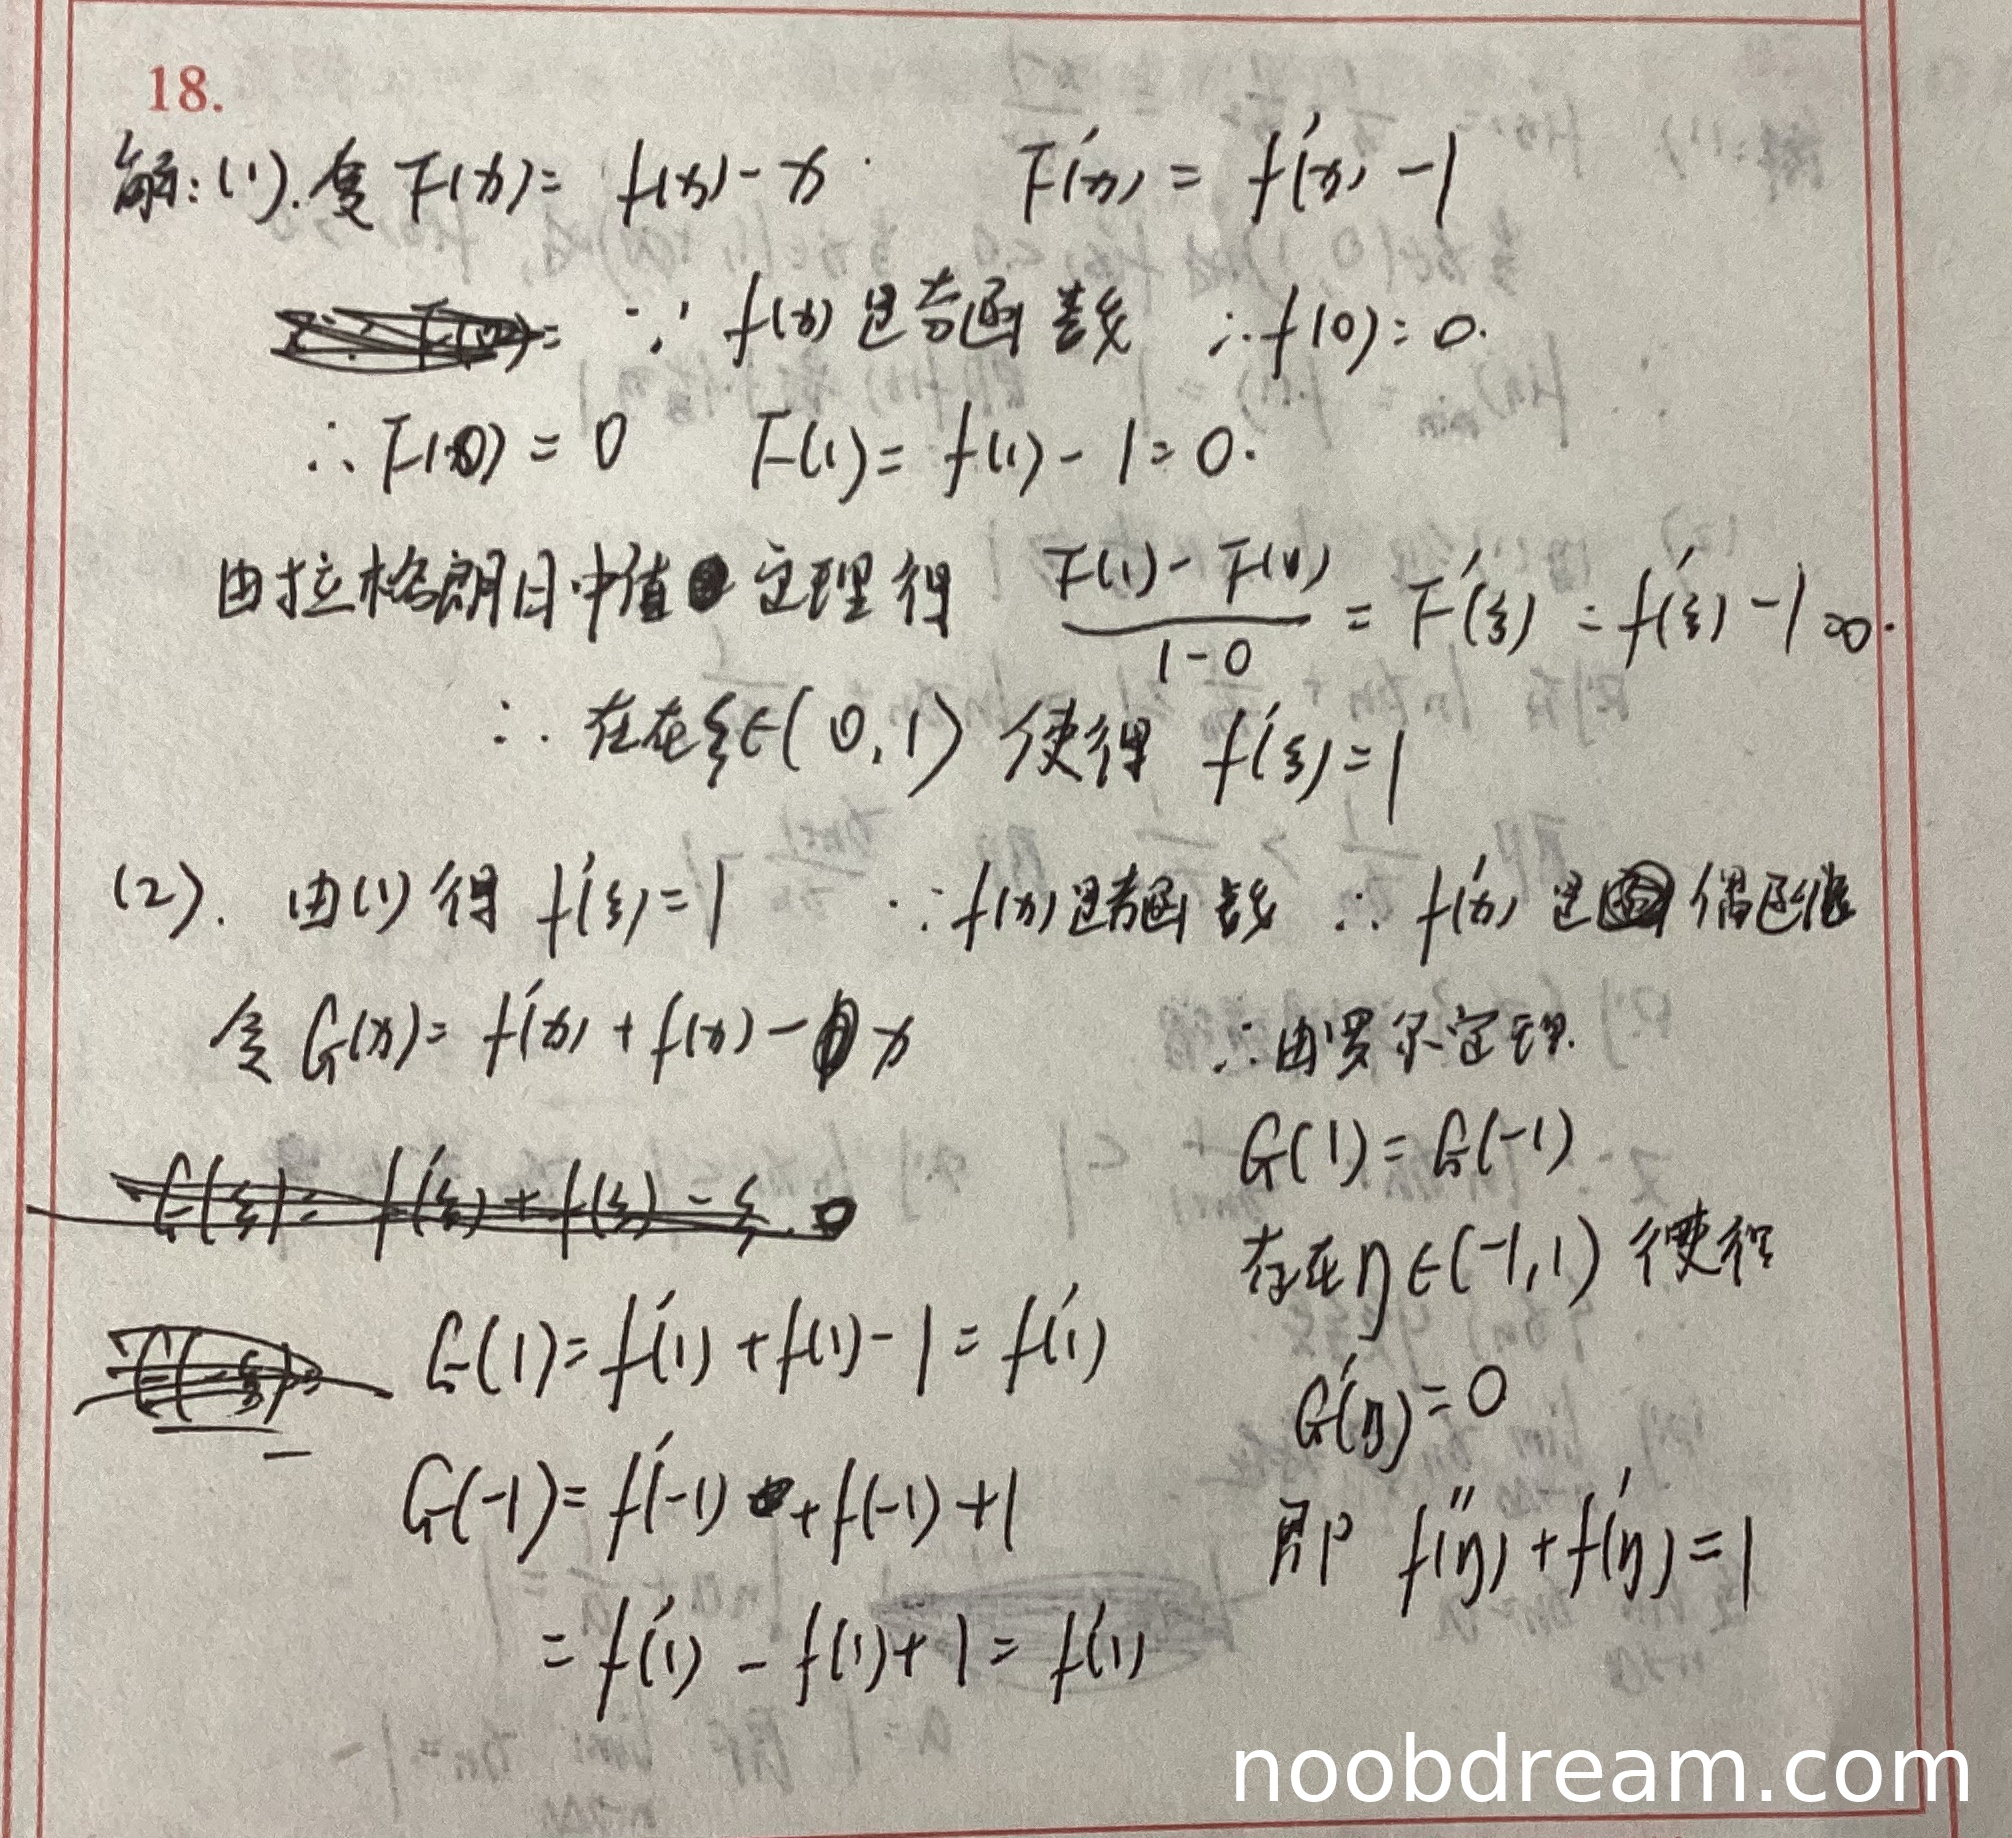 18.
解:(1).令 F(x)= f(x)-x. F'(x) = f'(x) -1
∵ f(x) 是奇函数 ∴f(0)=0.
∴ F(0) = 0 F(1)= f(1)-1=0.
由拉格朗日中值定理得 \frac{F(1)-F(0)}{1-0} = F'(ξ) = f'(ξ) -1=0.
∴ 存在ξ∈(0,1) 使得 f'(ξ)=1
(2). 由(1)得 f'(ξ)=1 ∵f(x)是奇函数 ∴ f'(x) 是偶函数
令 G(x)= f'(x) + f(x) - x
G(ξ)= f'(ξ)+f(ξ)-ξ.
G(1)= f'(1) +f(1)-1= f'(1)
G(-1)= f'(-1) +f(-1)+1
= f'(1) - f(1)+1= f'(1)
∴由罗尔定理.
G(1)=G(-1)
存在η∈(-1,1) 使得
G'(η)=0
即 f''(η)+f'(η)=1
noobdream.com